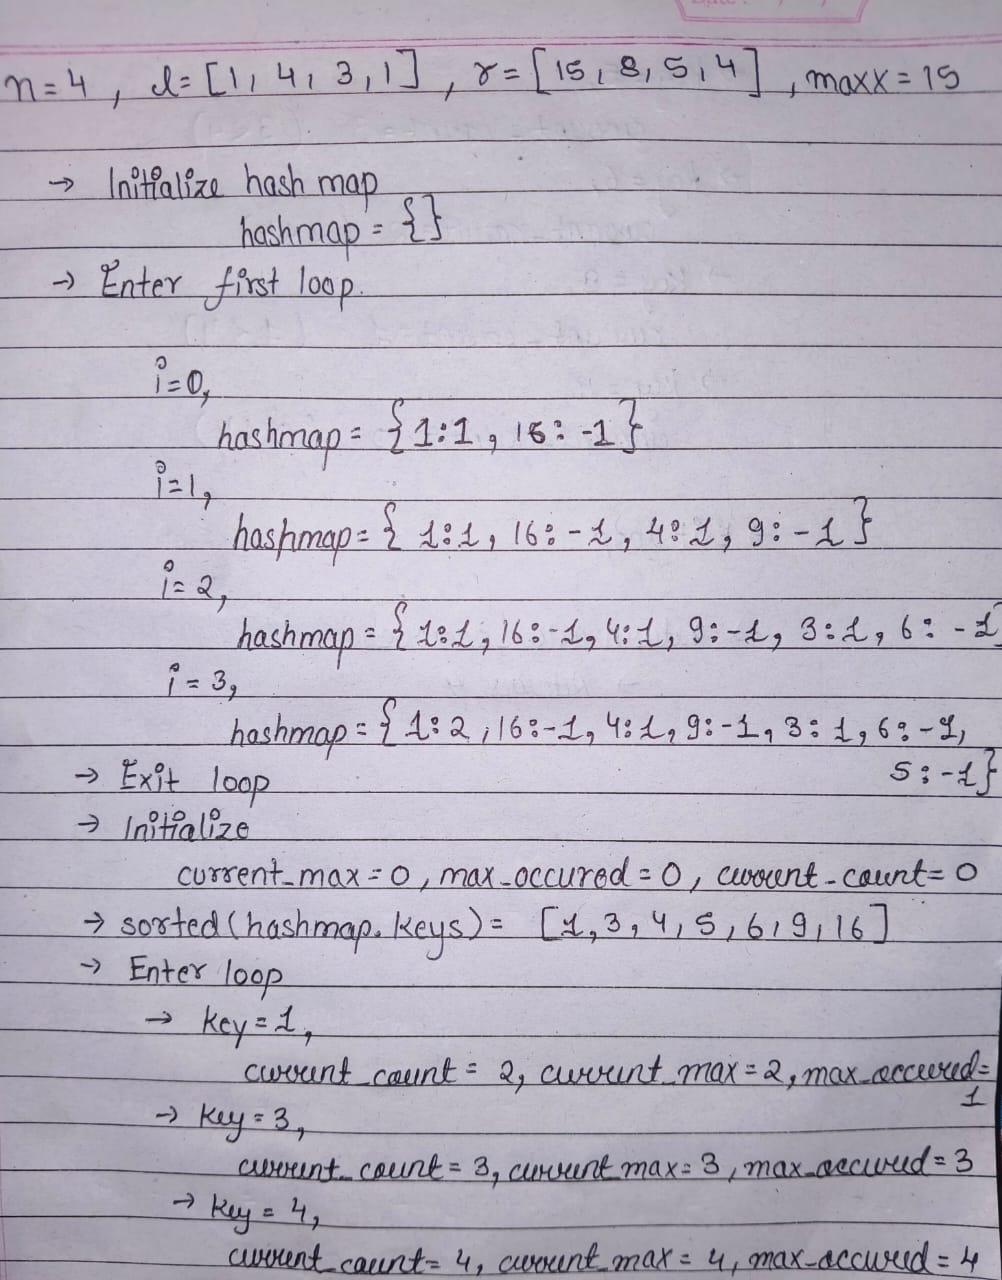 n=4 , l= [1, 4, 3, 1] , r= [15, 8, 5, 4] , maxx = 15
→ Initialize hash map
hashmap = {}
→ Enter first loop.
i=0,
hashmap = {1:1, 16: -1}
i=1,
hashmap= { 1:1, 16: -1, 4:1, 9: -1}
i= 2,
hashmap = { 1:1, 16:-1, 4:1, 9:-1, 3:1, 6: -1
i = 3,
hashmap = { 1:2, 16:-1, 4:1, 9:-1, 3: 1, 6: -1,
5:-1}
→ Exit loop
→ Initialize
current_max = 0, max_occured = 0, current_count= 0
→ sorted(hashmap.keys) = [1, 3, 4, 5, 6, 9, 16]
→ Enter loop
→ key = 1,
current_count = 2, current_max = 2, max_occured=
1
→ key = 3,
current_count = 3, current max = 3, max_occured = 3
→ key = 4,
current_count= 4, current_max = 4, max_occured = 4